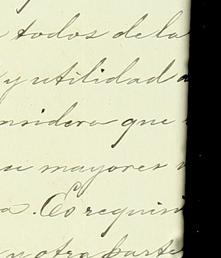 todos de la
y utilidad
nsidera que
mayores
. Es requisi
y otra parte